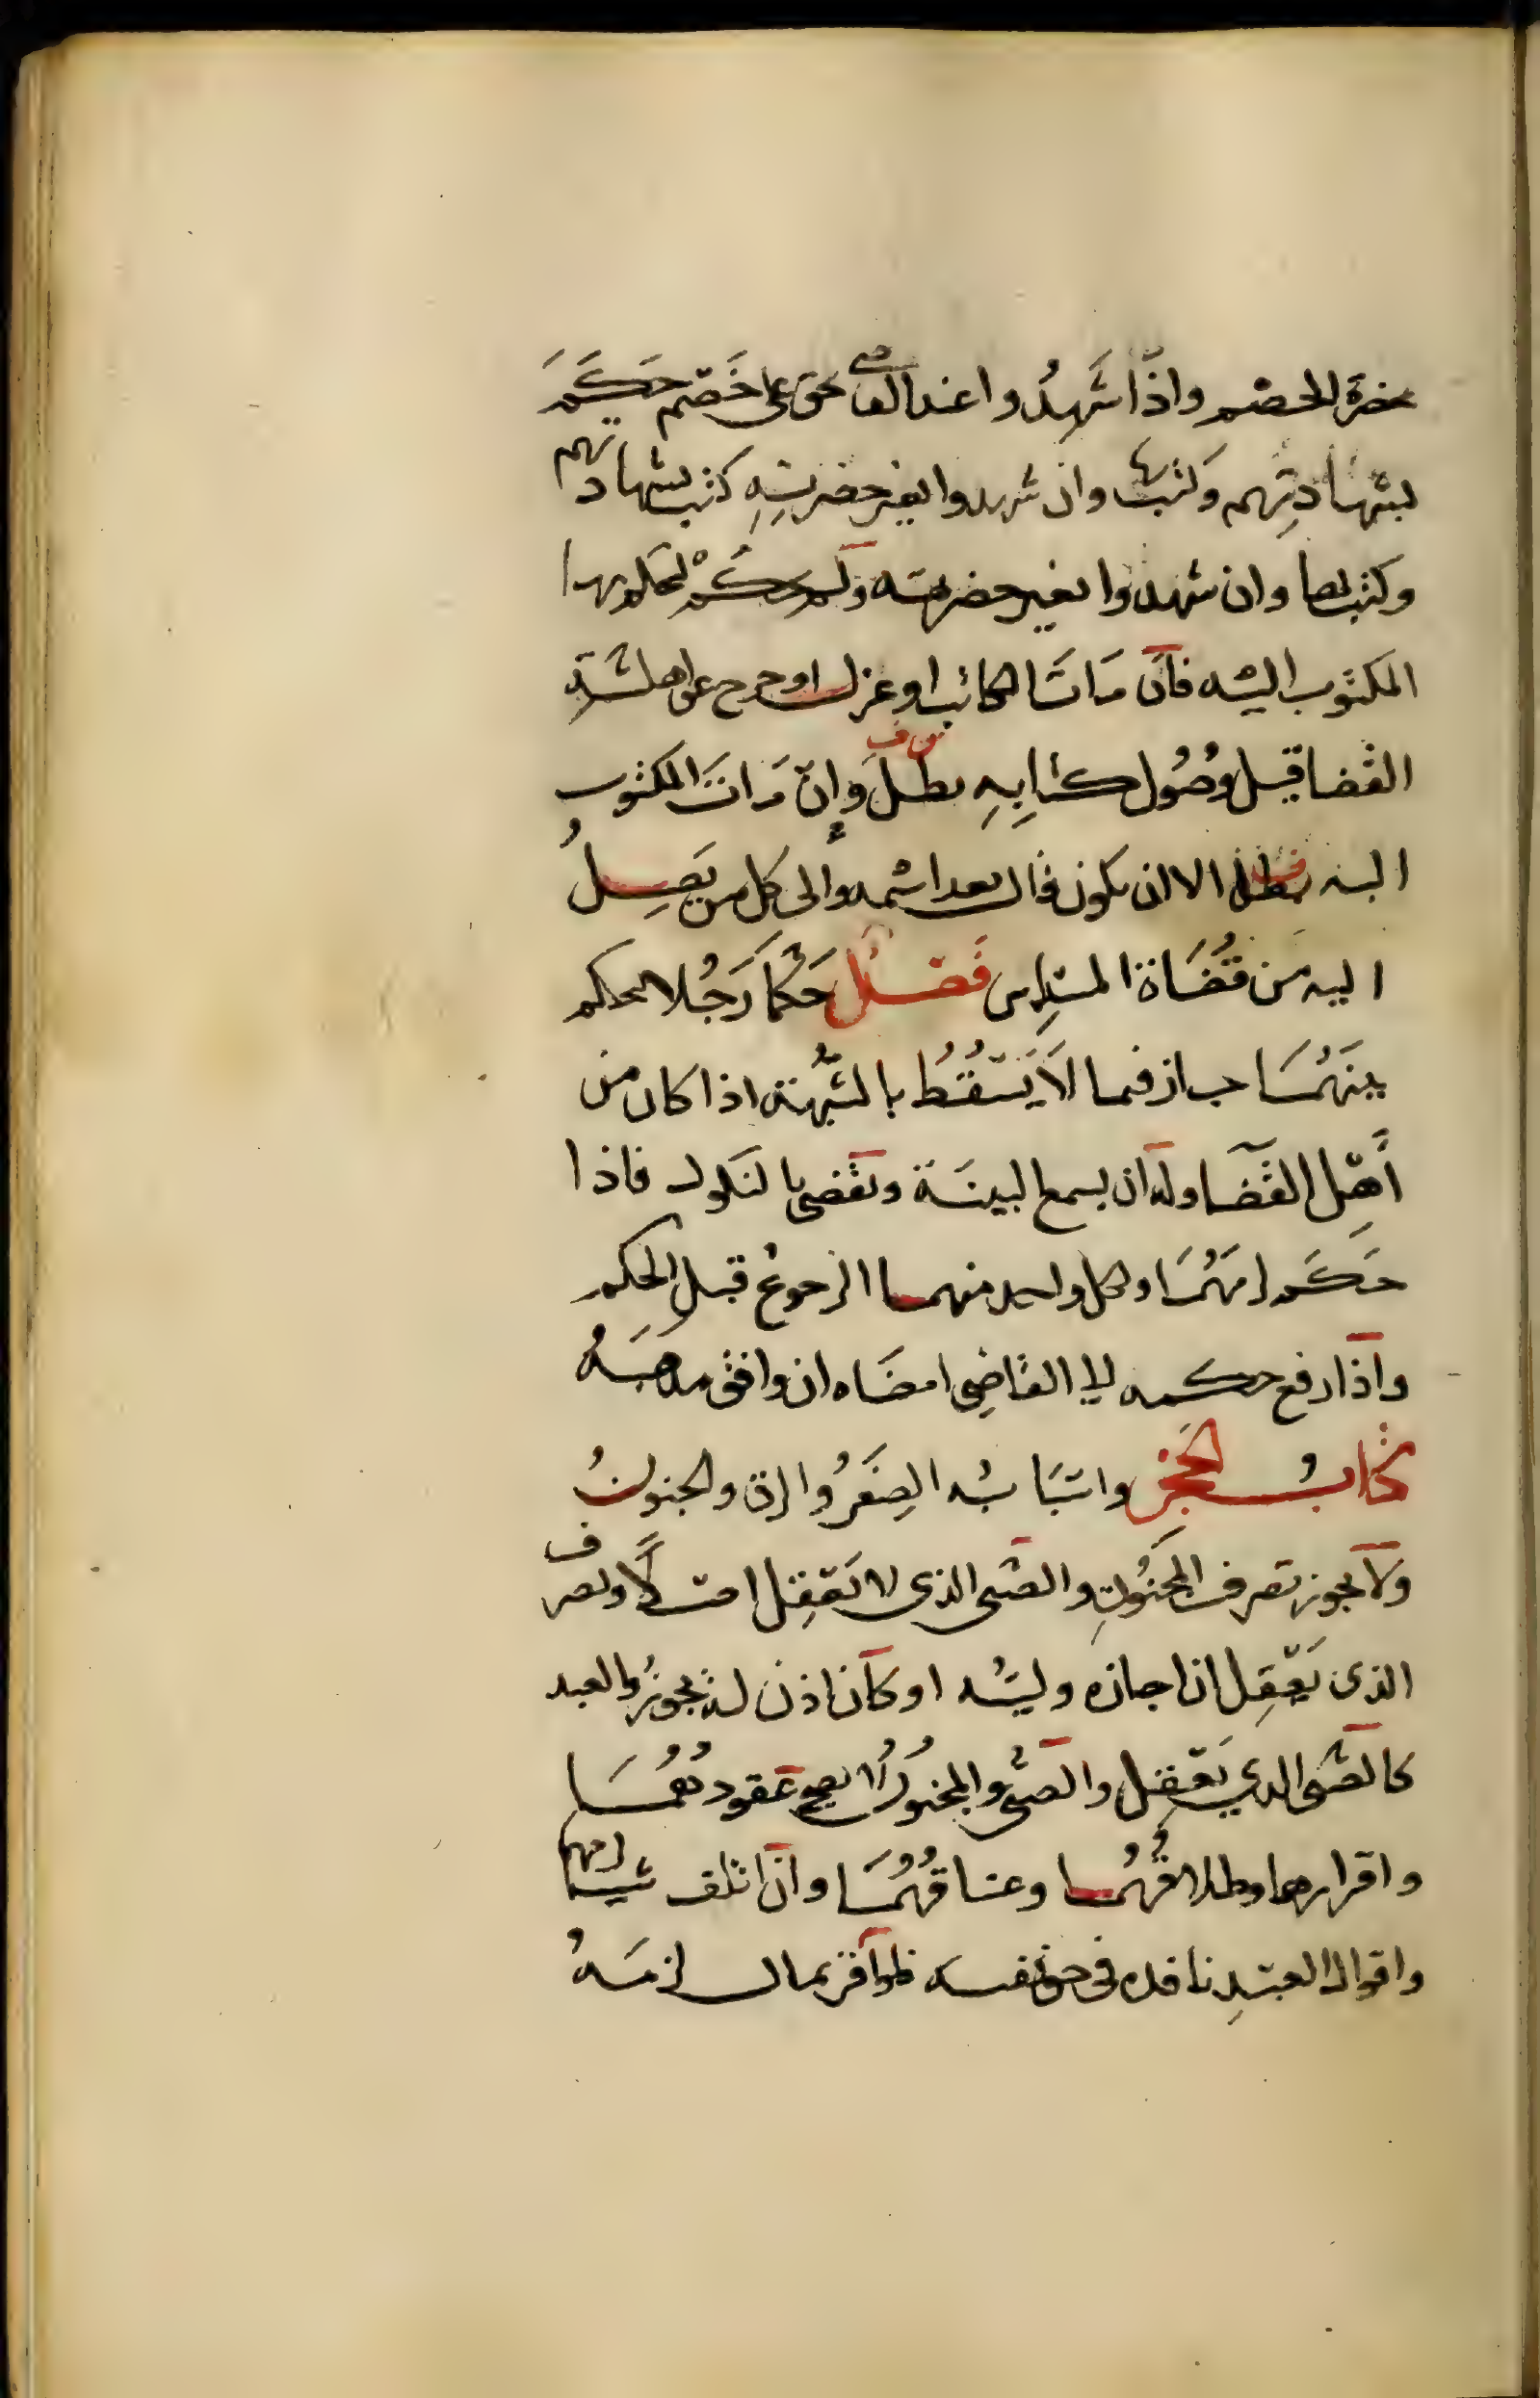 بحضرة الخصم واذا شهدوا عند القاضي بحق على خصم حكم
بشهادتهم وكتب بها وان شهدوا بغير حضرته كتب بشهادتهم
وكتب بها وان شهدوا بغير حضرته ولم يحكم ليحكم بها
المكتوب اليه فان مات الكاتب او عزل او خرج عن اهلية
القضا قبل وصول كتابه بطل س ف وان مات المكتوب
اليه بطل ف الا ان يكون قال بعد اسمه والى كل من يصل
اليه من قضاة المسلمين فصل حكما رجلا ليحكم
بينهما جاز فيما لا يسقط بالشبهة اذا كان من
أهل القضا وله ان يسمع البينة ويقضي بالنكول فاذا
حكم لزمهما ولكل واحد منهما الرجوع قبل الحكم
واذا رفع حكمه الى القاضي امضاه ان وافق مذهبه
كتاب الحجر واسبابه الصغر والرق والجنون
ولا يجوز تصرف المجنون والصبي الذي لا يعقل اصلا وتصرف
الذي يعقل ان اجازه وليه او كان اذن له يجوز والعبد
كالصبي الذي يعقل والصبي والمجنون لا يصح عقودهما
واقرارهما وطلاقهما وعتاقهما وان اتلفا شيا لزمهما
واقوال العبد نافذه في حق نفسه فلو اقر بمال لزمه